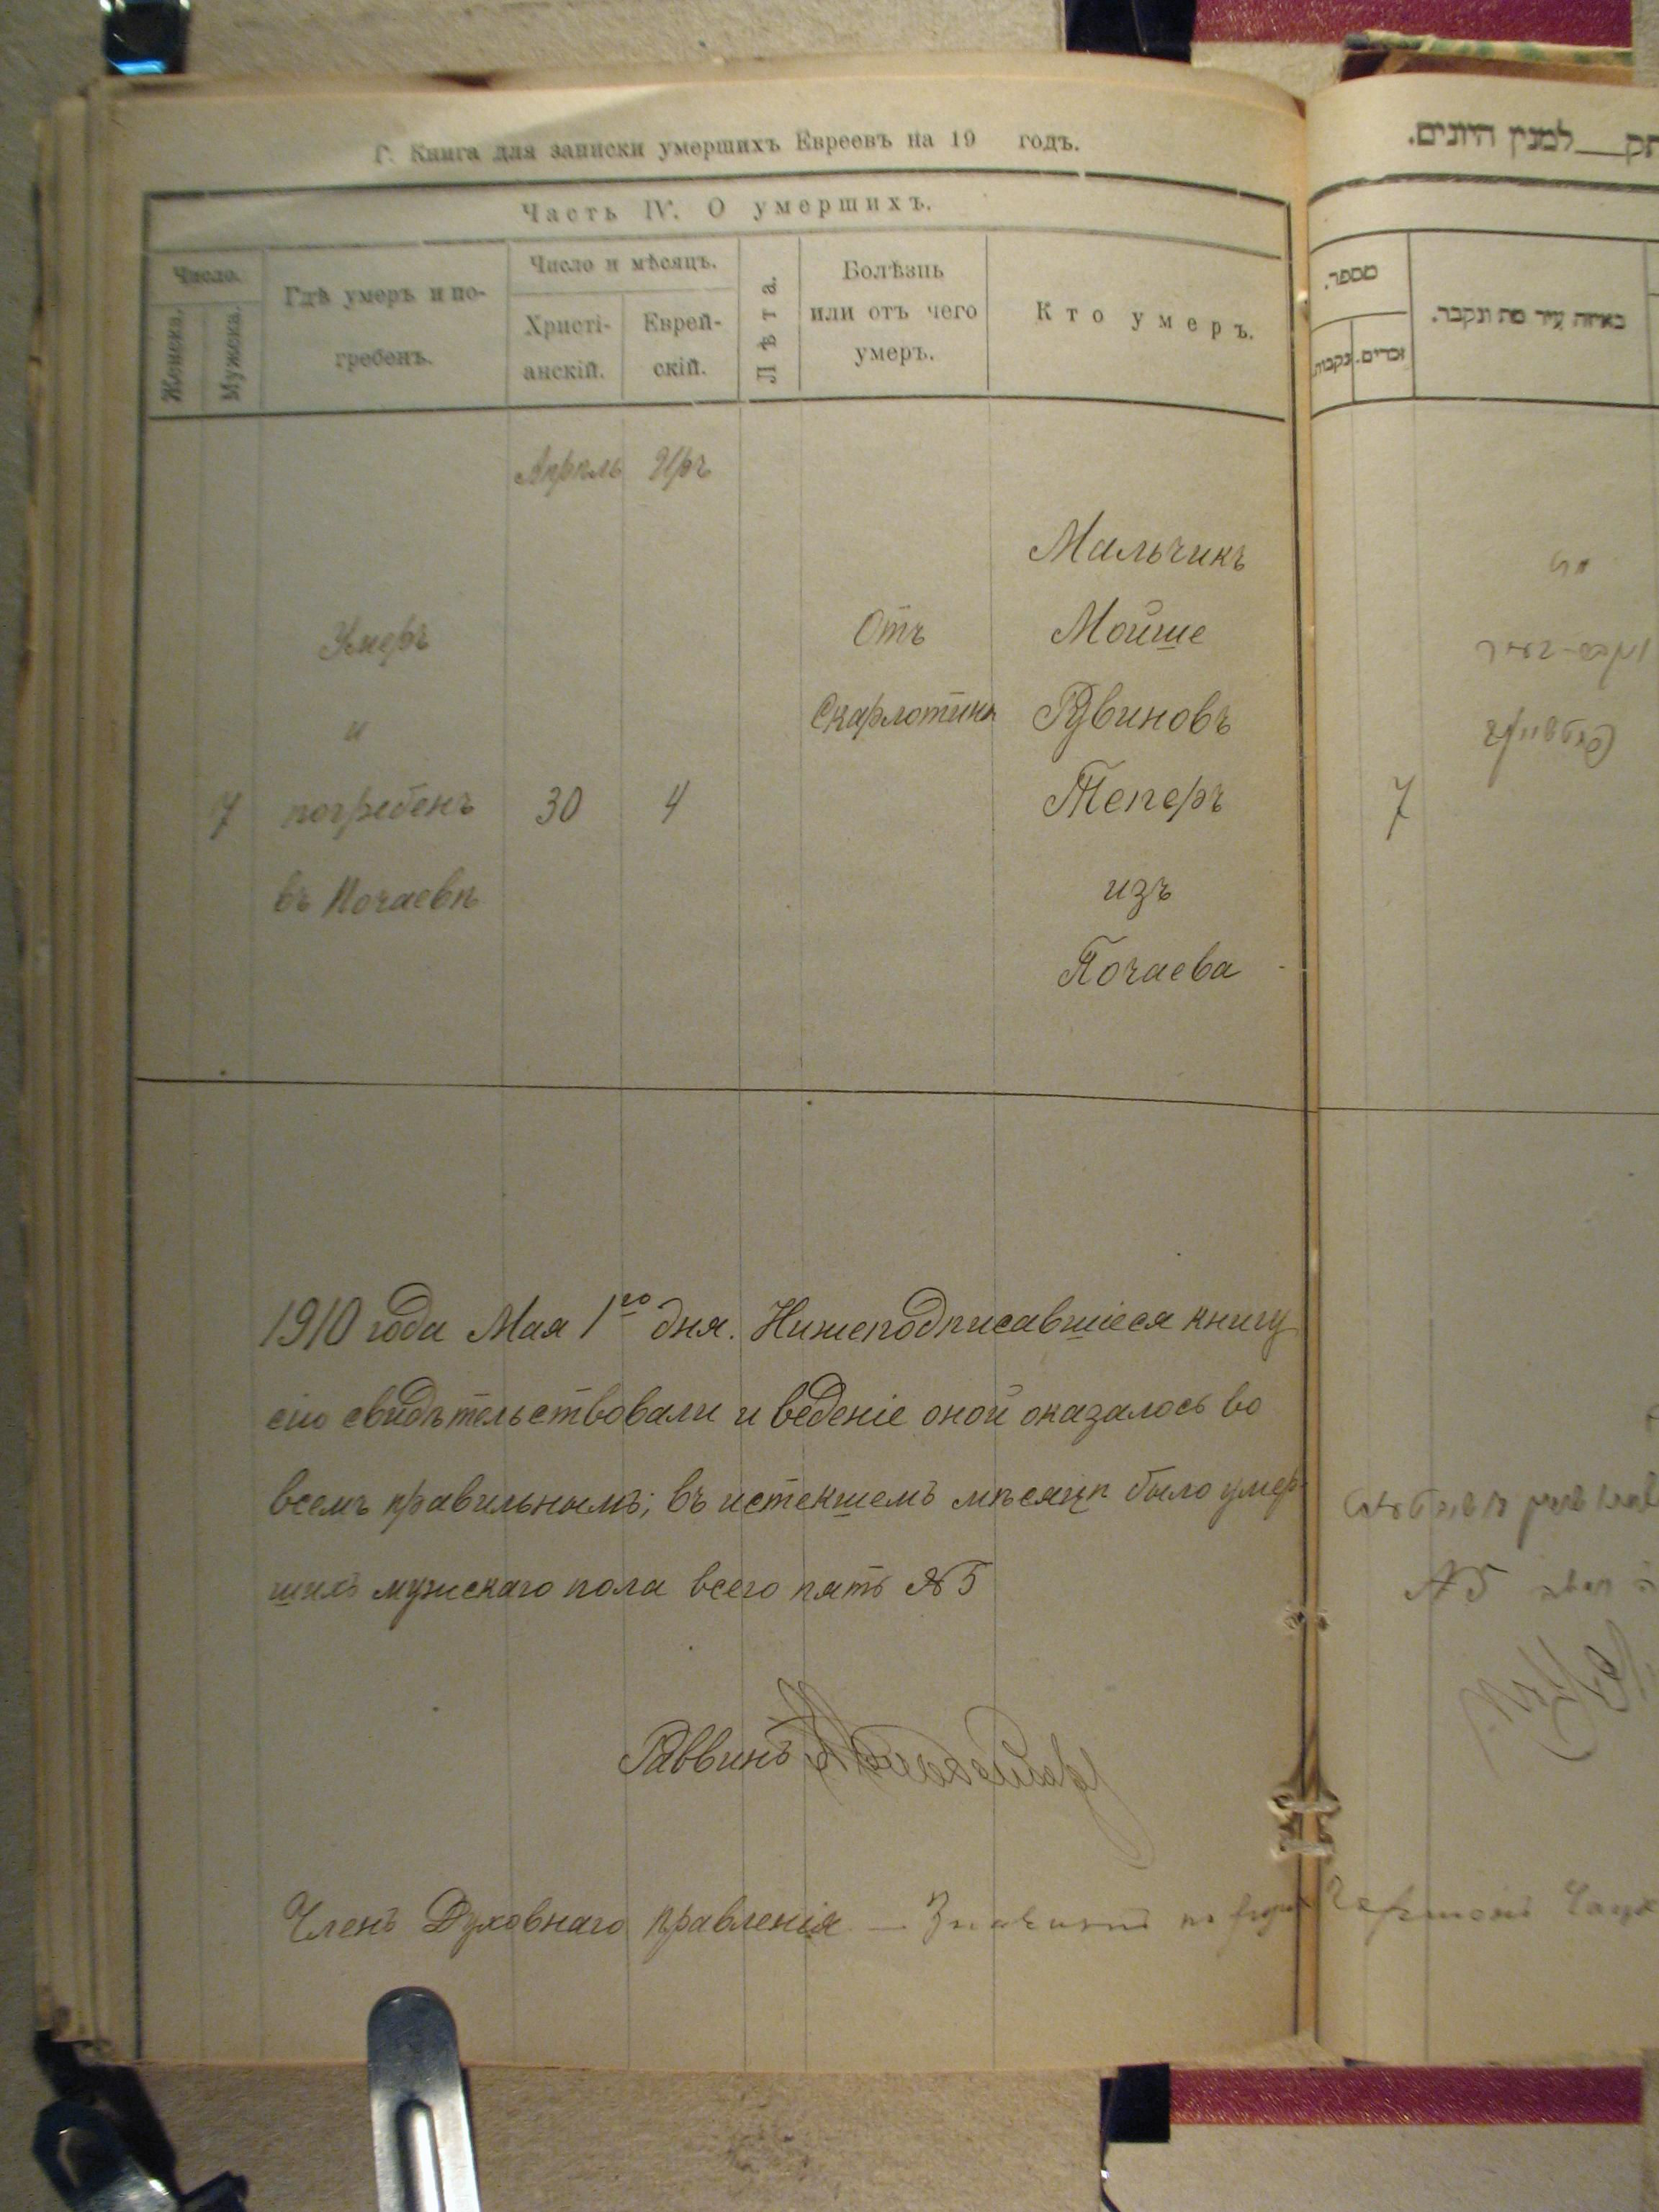 Г. Книга для записки умершихъ Евреевъ на 19 годъ.
Часть IV. О умершихъ.
Число.
Женска.
Мужска.
Гдѣ умеръ и по-
гребенъ.
Число и мѣсяцъ.
Христі-
анскій.
Еврей-
скій.
Лѣта.
Болѣзнь
или отъ чего
умеръ.
Кто умеръ.
Апрѣль Iръ
Мальчикъ
Умеръ Отъ Мойше
и Скарлотины Рувиновъ
7 погребенъ 30 4 Теперъ
въ Почаевѣ изъ
Почаева
1910 года Мая 1го дня. Нижеподписавшіеся книгу
сію свидѣтельствовали и веденіе оной оказалось во
всемъ правильнымъ; въ истекшемъ мѣсяцѣ было умер-
шихъ мужскаго пола всего пять №5
Раввинъ
Членъ Духовнаго правленія —
למנין היונים.
מספר.
נקבות.
זכרים.
באיזה עיר מת ונקבר.
7
№5